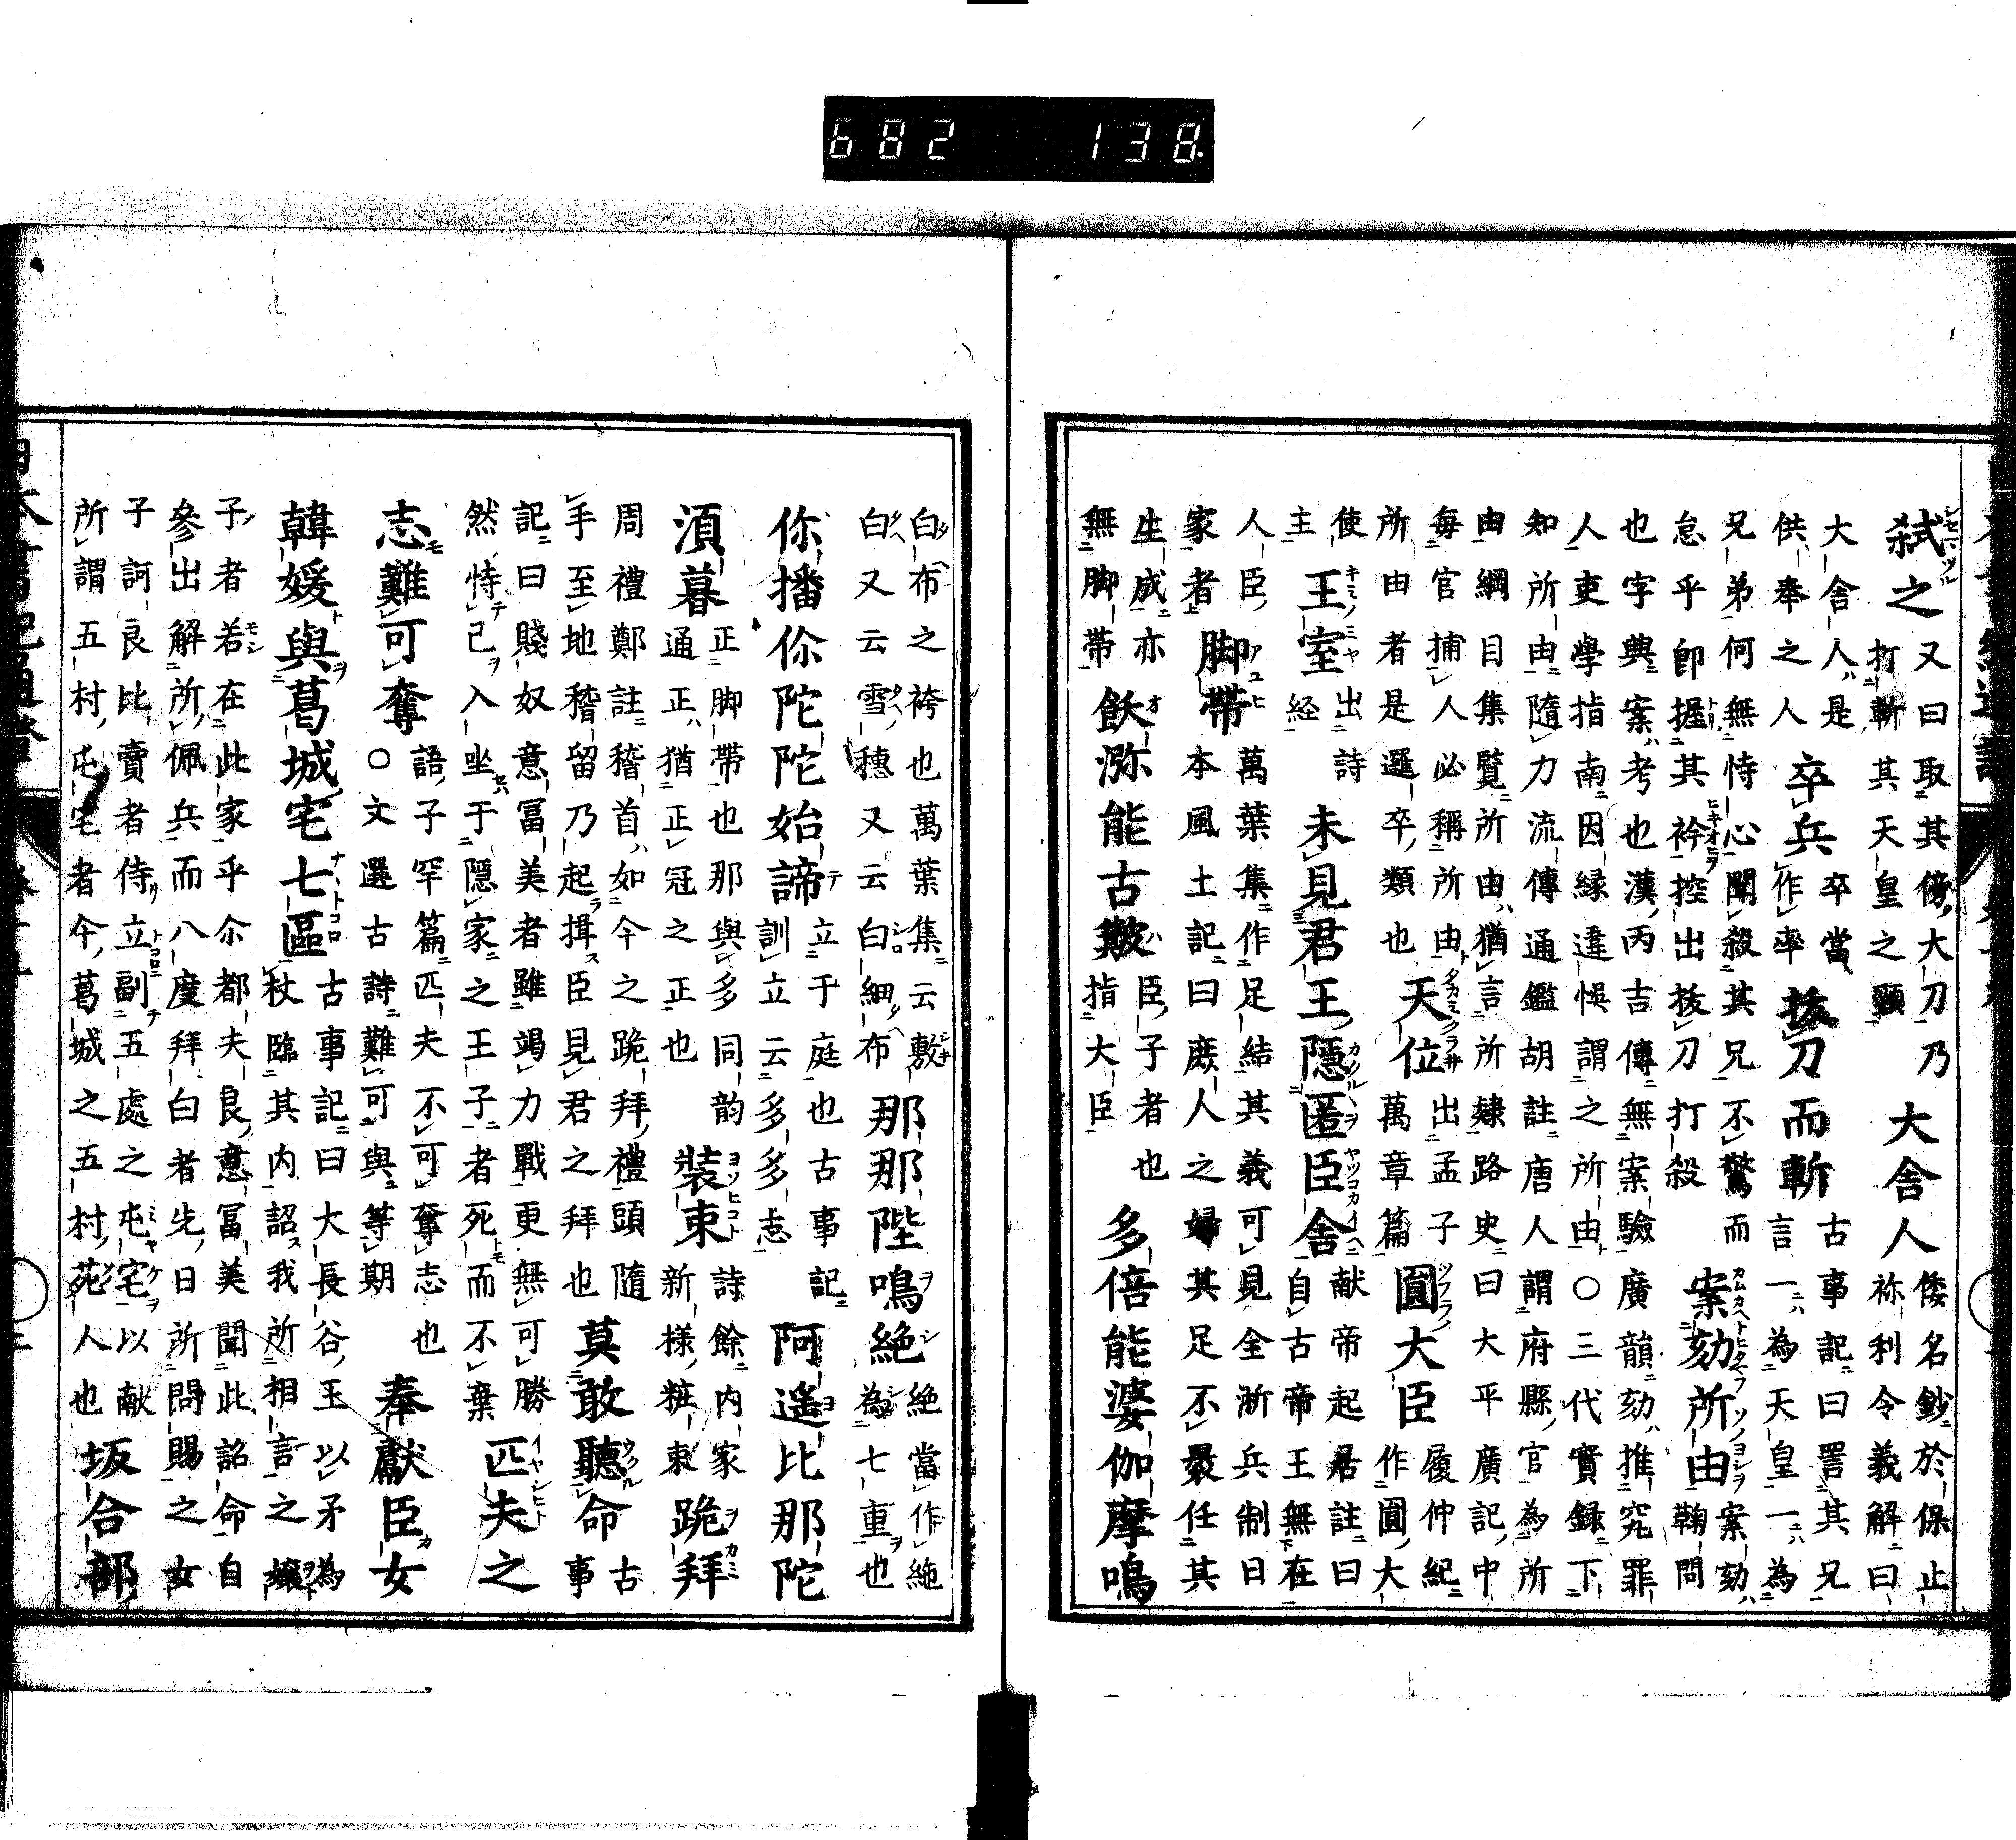 弑之又曰取其傍大刀乃打斬其天皇之頸大舍人倭名鈔於保止祢利令義解曰
大舍人是供奉之人卒兵卒當作率拔刀而斬古事記曰詈其兄言一為天皇一為
兄弟何無恃心聞殺其兄不驚而怠乎卽握其衿控出拔刀打殺案劾所由案劾鞫問
也字典案考也漢丙吉傳無案驗廣韻劾推窮罪
人吏學指南因縁違悞謂之所由○三代實録下
知所由隨力流傳通鑑胡註唐人謂府縣官為所
由綱目集覽所由猶言所隸路史曰大平廣記中
每官捕人必稱所由所由者是邏卒類也天位出孟子萬章篇圓大臣履仲紀作圓大
使主王室出詩経未見君王隱匿臣舍献帝起居註曰自古帝王無在
人臣家者脚帶萬葉集作足結其義可見全淅兵制日本風土記曰庶人之婦其足不褁任其
生成亦無脚帶飫瀰能古簸臣子者也指大臣多倍能婆伽摩鳴
白布之袴也萬葉集云敷白又云雪穗又云白細布那那陛鳴絶絶當作絁為七重也
你播伱陀陀始諦立于庭也古事記訓立云多多志阿遥比那陀
須暮正脚帶也那與多同韵通正猶正冠之正也裝束詩餘内家新様粧束跪拜
周禮鄭註稽首如今之跪拜禮頭隨手至地稽留乃起揖臣見君之拜也莫敢聽命古事
記曰賤奴意冨美者雖竭力戰更無可勝然恃己入坐于隱家之王子者死而不棄匹夫之
志難可奪語子罕篇匹夫不可奪志也○文選古詩難可與等期奉獻臣女
韓媛與葛城宅七區古事記曰大長谷王以矛為杖臨其内詔我所相言之孃
子者若在此家乎尒都夫良意冨美聞此詔命自
參出解所佩兵而八度拜白者先日所問賜之女
子訶良比賣者侍立副五處之屯宅以献所謂五村屯宅者今葛城之五村苑人也坂合部
682 138